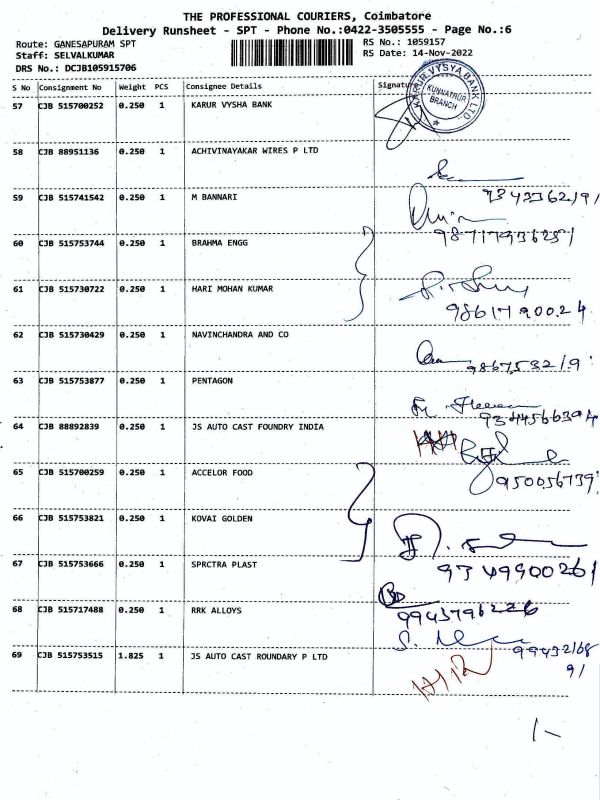 THE PROFESSIONAL COURIERS, Coimbatore
Delivery Runsheet - SPT - Phone No.:0422-3505555 - Page No.:6
Route: GANESAPURAM SPT
RS No.: 1059157
Staff: SELVALKUMAR
RS Date: 14-Nov-2022
DRS No.: DCJB105915706
S No Consignment No Weight PCS Consignee Details Signatur
57 CJB 515700252 0.250 1 KARUR VYSHA BANK
KARUR VYSYA BANK LTD.
KUNNATHUR
BRANCH
58 CJB 88951136 0.250 1 ACHIVINAYAKAR WIRES P LTD
59 CJB 515741542 0.250 1 M BANNARI
60 CJB 515753744 0.250 1 BRAHMA ENGG
61 CJB 515730722 0.250 1 HARI MOHAN KUMAR
62 CJB 515730429 0.250 1 NAVINCHANDRA AND CO
63 CJB 515753877 0.250 1 PENTAGON
64 CJB 88892839 0.250 1 JS AUTO CAST FOUNDRY INDIA
65 CJB 515700259 0.250 1 ACCELOR FOOD
66 CJB 515753821 0.250 1 KOVAI GOLDEN
67 CJB 515753666 0.250 1 SPRCTRA PLAST
9349900261
68 CJB 515717488 0.250 1 RRK ALLOYS
69 CJB 515753515 1.825 1 JS AUTO CAST ROUNDARY P LTD
99432168
91